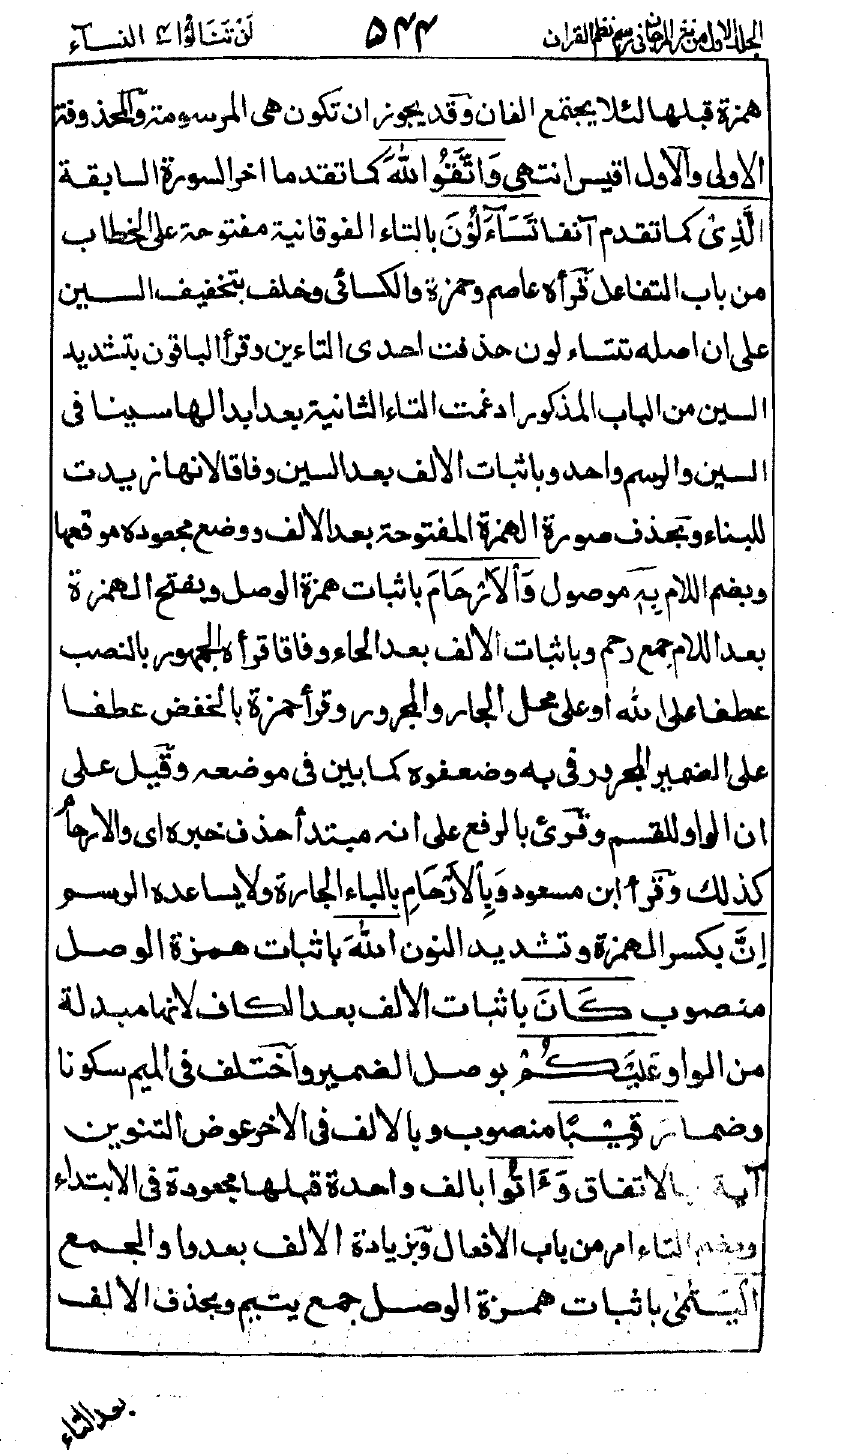 الجلد الاول من نثر المرجان فى رسم نظم القران ۵۴۴ لن تنالوا ۴ النسآء
همزة قبلها لئلا يجتمع الفان وقد يجوز ان تكون هى المرسومة والمحذوفة
الاولى والاول اقيس انتهى وَاتَّقُوا اللهَ كما تقدم اٰخر السورة السابقة
الَّذِىْ كما تقدم آنفا تَسَآءَلُوْنَ بالتاء الفوقانية مفتوحة على الخطاب
من باب التفاعل قرأه عاصم وحمزة والكسائى وخلف بتخفيف السين
على ان اصله تتساءلون حذفت احدى التاءين وقرأ الباقون بتشديد
السين من الباب المذكور ادغمت التاء الثانية بعد ابدالها سينا فى
السين والرسم واحد وباثبات الالف بعد السين وفاقا لانها زيدت
للبناء وبحذف صورة الهمزة المفتوحة بعد الالف ووضع مجعودة موقعها
وبضم اللام بِهٖ موصول وَالْاَرْحَامَ باثبات همزة الوصل وبفتح الهمزة
بعد اللام جمع رحم وباثبات الالف بعد الحاء وفاقا قرأه الجمهور بالنصب
عطفا على الله او على محل الجار والمجرور وقرأ حمزة بالخفض عطفا
على الضمير المجرور فى به وضعفوه كما بين فى موضعه وقيل على
ان الواو للقسم وقرئ بالرفع على انه مبتدأ حذف خبره اى والارحامُ
كذلك وقرأ ابن مسعود وَبِالْاَرْحَامِ بالباء الجارة ولا يساعده الرسم
اِنَّ بكسر الهمزة وتشديد النون اللهَ باثبات همزة الوصل
منصوب كَانَ باثبات الالف بعد الكاف لانها مبدلة
من الواو عَلَيْكُمْ بوصل الضمير واختلف فى الميم سكونا
وضما رَقِيْبًا منصوب وبالالف فى الاخر عوض التنوين
آية بالاتفاق وَءَاتُوا بالف واحدة قبلها مجعودة فى الابتداء
وبضم التاء امر من باب الافعال وبزيادة الالف بعد واو الجمع
الْيَتٰمٰى باثبات همزة الوصل جمع يتيم وبحذف الالف
بعد التاء